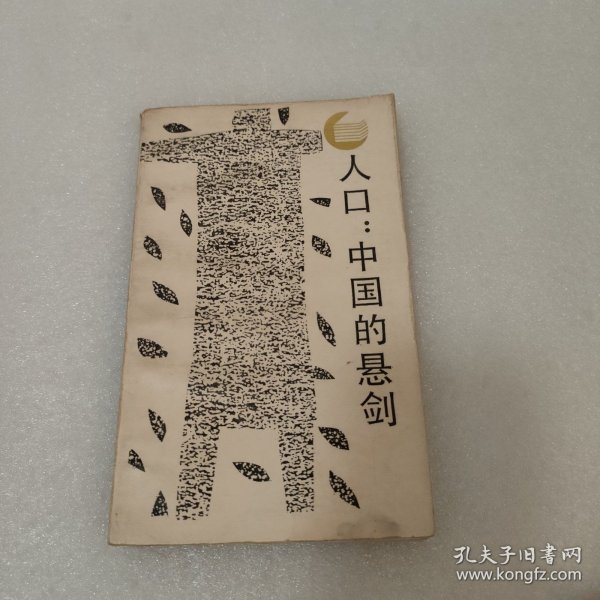 人口：中国的悬剑
孔夫子旧書网
www.kongfz.com